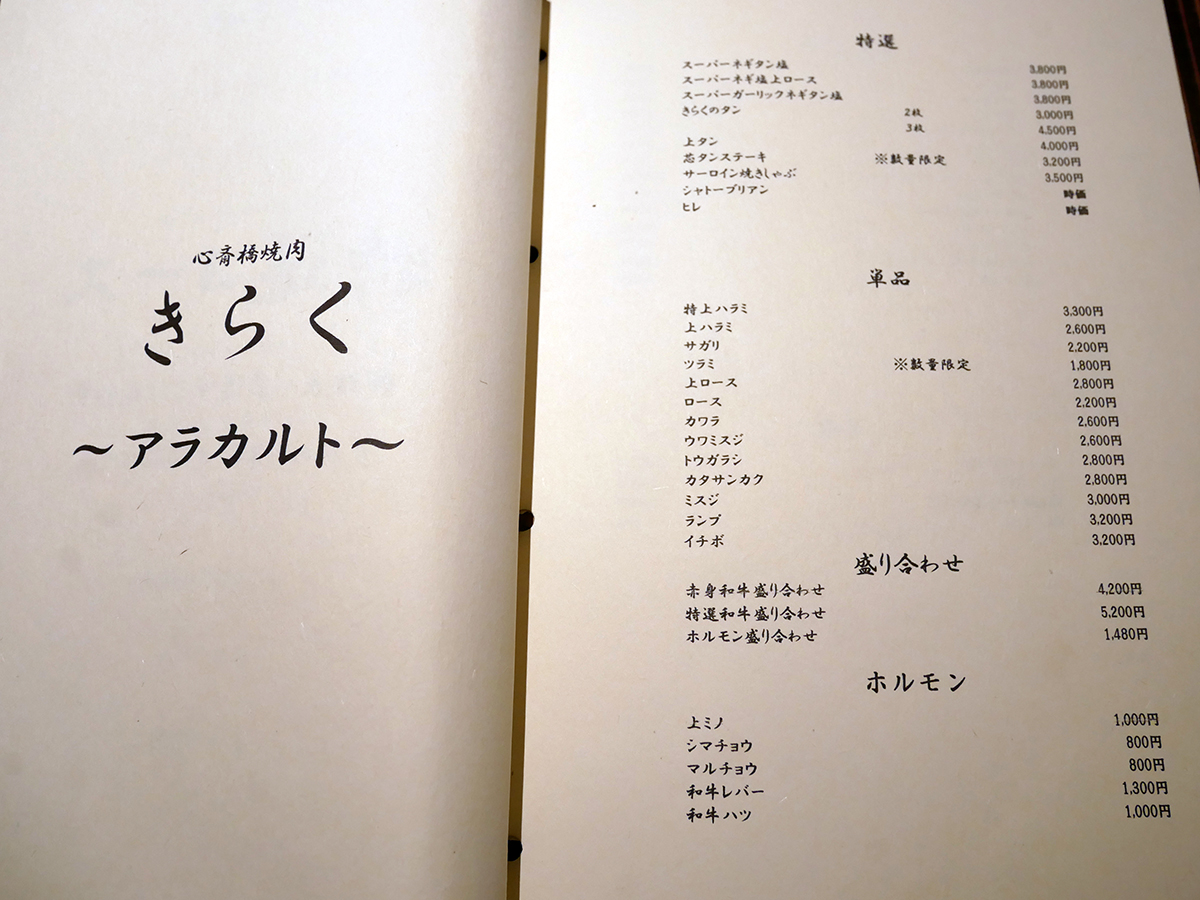 心斎橋焼肉
きらく
〜アラカルト〜
特選
スーパーネギタン塩 3,800円
スーパーネギ塩上ロース 3,800円
スーパーガーリックネギタン塩 3,800円
きらくのタン 2枚 3,000円
3枚 4,500円
上タン 4,000円
芯タンステーキ ※数量限定 3,200円
サーロイン焼きしゃぶ 3,500円
シャトーブリアン 時価
ヒレ 時価
単品
特上ハラミ 3,300円
上ハラミ 2,600円
サガリ 2,200円
ツラミ ※数量限定 1,800円
上ロース 2,800円
ロース 2,200円
カワラ 2,600円
ウワミスジ 2,600円
トウガラシ 2,800円
カタサンカク 2,800円
ミスジ 3,000円
ランプ 3,200円
イチボ 3,200円
盛り合わせ
赤身和牛盛り合わせ 4,200円
特選和牛盛り合わせ 5,200円
ホルモン盛り合わせ 1,480円
ホルモン
上ミノ 1,000円
シマチョウ 800円
マルチョウ 800円
和牛レバー 1,300円
和牛ハツ 1,000円